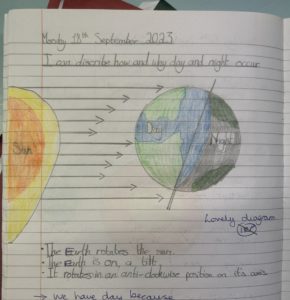 Monday 18th September 2023
I can describe how and why day and night occur
Sun
Day
Night
Lovely diagram
• The Earth rotates the sun.
• The Earth is on, a tilt.
• It rotates in an anti-clockwise position on it's axis
→ we have day because